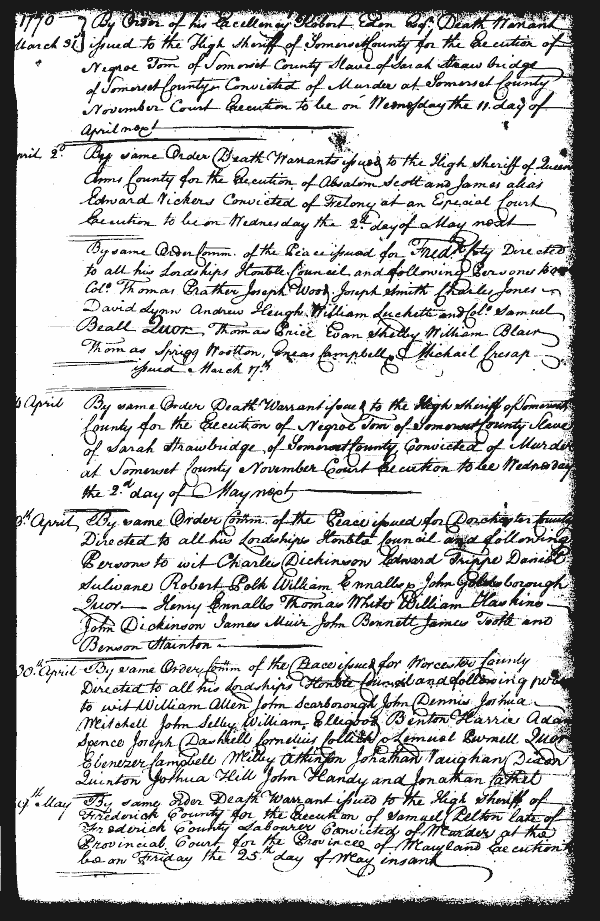 1770 By Order of his Excellency Robert Eden Esqr. Death Warrant
March 31 issued to the High Sheriff of Somerset County for the Execution of
Negroe Tom of Somerset County Slave of Sarah Strawbridge
of Somerset County Convicted of Murder at Somerset County
November Court Execution to be on Wednesday the 11 day of
April next
April 2d By same Order Death Warrants issued to the High Sheriff of Queen
Anns County for the Execution of Absalom Scott and James alias
Edward Vickers Convicted of Felony at an Especial Court
Execution to be on Wednesday the 2d day of May next
By same Order Comn. of the Peace issued for Fredk. Cty Directed
to all his Lordships Honble Council and following Persons to wit
Colo. Thomas Prather Joseph Wood, Joseph Smith Charles Jones
David Lynn Andrew Heugh William Luckett and Colo. Samuel
Beall Quor. Thomas Price Evan Shelby William Blair
Thomas Sprigg Wootton, Eneas Campbell & Michael Cresap
issued March 17th
April By same Order Death Warrant issued to the High Sheriff of Somerset
County for the Execution of Negroe Tom of Somerset County Slave
of Sarah Strawbridge of Somerset County Convicted of Murder
at Somerset County November Court Execution to be Wednesday
the 2d day of May next
April By same Order Comn. of the Peace issued for Dorchester County
Directed to all his Lordships Honble Council and following
Persons to wit Charles Dickinson Edward Trippe Daniel
Sulivane Robert Polk William Ennalls John Goldsborough
Quor. Henry Ennalls Thomas White William Haskins
John Dickinson James Muir John Bennett James Tootle and
Benson Stainton
30th April By same Order Comn of the Peace issued for Worcester County
Directed to all his Lordships Honble Council and following persons
to wit William Allen John Scarborough John Dennis Joshua
Mitchell John Selby William Ellegood Benton Harris Adam
Spence Joseph Dashiell Cornelius Lemuel Purnell Quor
Ebenezer Campbell Milby Atkinson Jonathan Vaughan Dixon
Quinton Joshua Hill John Handy and Jonathan Cathel
May By same order Death Warrant issued to the High Sheriff of
Frederick County for the Execution of Samuel Pelton late of
Frederick County Labourer Convicted of Murder at the
Provincial Court for the Province of Maryland Execution to
be on Friday the 25th day of May insant